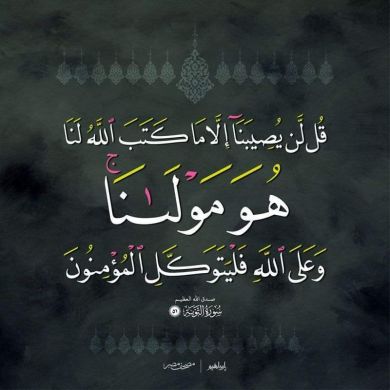 قُل لَّن يُصِيبَنَآ إِلَّا مَا كَتَبَ ٱللَّهُ لَنَا
هُوَ مَوْلَىٰنَا ۚ
وَعَلَى ٱللَّهِ فَلْيَتَوَكَّلِ ٱلْمُؤْمِنُونَ
صدق الله العظيم
سُورَةُ التَّوْبَةِ ٥١
مصحف مصر